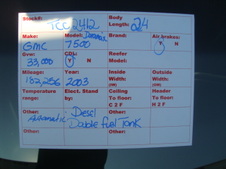 Stock#: TCC2412 Body Length: 24
Make: GMC Model: 7500 Brand: Air brakes: Y N
Gvw: 33,000 CDL: Y N Reefer Model:
Mileage: 182,256 Year: 2003 Inside Width: Outside Width:
Temperature range: Elect. Stand by Ceiling To floor: Header To floor:
C 2 F H 2 F
Other: Automatic Other: Desel
Double fuel Tank
Other: Other: